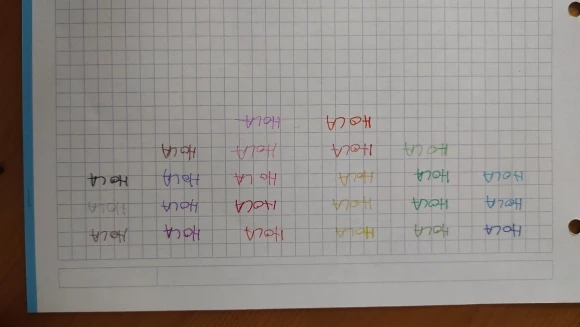 HOLA HOLA HOLA HOLA HOLA HOLA
HOLA HOLA HOLA HOLA HOLA HOLA
HOLA HOLA HOLA HOLA HOLA HOLA
HOLA HOLA HOLA HOLA
HOLA HOLA